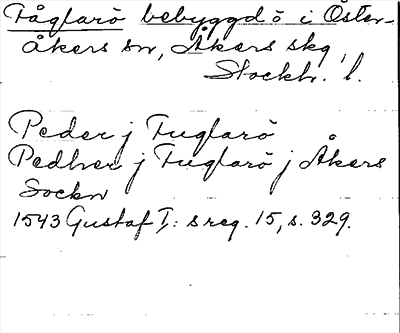 Fåglarö bebyggd ö i Öster-
åkers sn, Åkers skg,
Stockh. l.
Peder j Fuglarö
Pedher j Fuglarö j Åkers
Sockn
1543 Gustaf I: s reg. 15, s. 329.